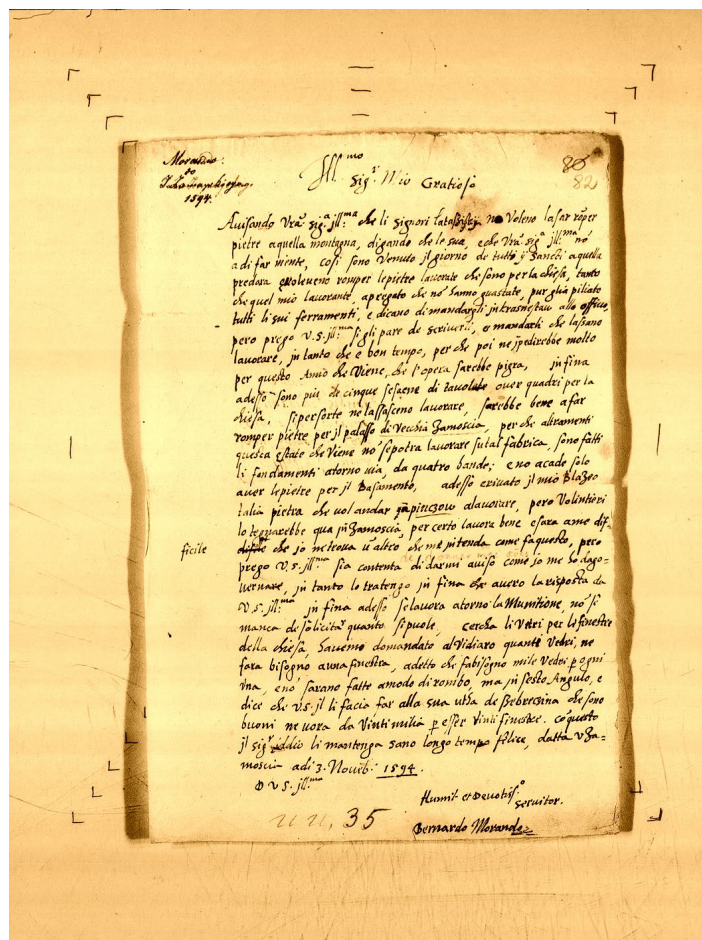 Morando:
do
1594.
Ill.mo
Sig.r Mio Gratioso
80
82
Avisando Vra. sig.a jll.ma che li signori no Voleno lasar roper
pietre aquella montagna, digando che le sua, e che Vra. sig.a jll.ma no
a di far niente, cosi sono Venuto jl giorno de tutto Sancti aquella
predara e voleveno romper le pietre lavorate che sono per la chiesa, tanto
che quel mio lavorante, a pregato che no hanno guastate, pur glia piliato
tutti li sui ferramenti, e dicano di mandargli allo officio,
pero prego V.S. jll.ma si gli pare de scriverli, o mandarli che lassano
lavorare, jn tanto che e bon tempo, per che poi ne jpedirebbe molto
per questo Anno che Viene, che l'opera sarebbe pigra, jn fina
adesso sono piu de cinque sesaene di tavolate over quadri per la
chiesa, si per sorte ne lassasceno lavorare, sarebbe bene a far
romper pietre per jl palasso di Vecchia Zamoscia, per che altramenti
questa estate che Viene no se potra lavorare su tal fabrica, sono fatti
li fondamenti atorno via, da quatro bande; e no acade solo
aver le pietre per jl Basamento, adesso erivato jl mio Blazeo
talia pietra che vol andar a pinczow a lavorare, pero Volintieri
lo tegnarebbe qua jn Zamoscia, per certo lavora bene e sara a me dif-
ficile che jo ne trova u altro che me jntenda come fa questo, pero
prego V.S. jll.ma sia contenta di darmi aviso come jo me ho da go-
vernare, jn tanto lo tratengo jn fina che avero la risposta da
V.S. jll.ma jn fina adesso se lavora atorno la Munitione, no si
manca de solicitar quanto si puole, cercha li Vetri per le finestre
della chiesa, havemo domandato al Vidraro quanti Vedri, ne
fara bisogno a una finestra, a detto che fa bisogno mile Vedri p ogni
una, e no sarano fatte a modo di rombo, ma jn sesto Angulo, e
dice che V.S. jl li facia far alla sua utha de Bebrecsina che sono
buoni ne vora da Vinti milia p esser Vinti finestre. co questo
jl sig.r iddio li mantenga sano longo tempo felice, datta Za-
moscia adi 3. Novéb: 1594.
D V.S. jll.ma
Humil. et Devotiss.o
servitor.
Bernardo Morando
35